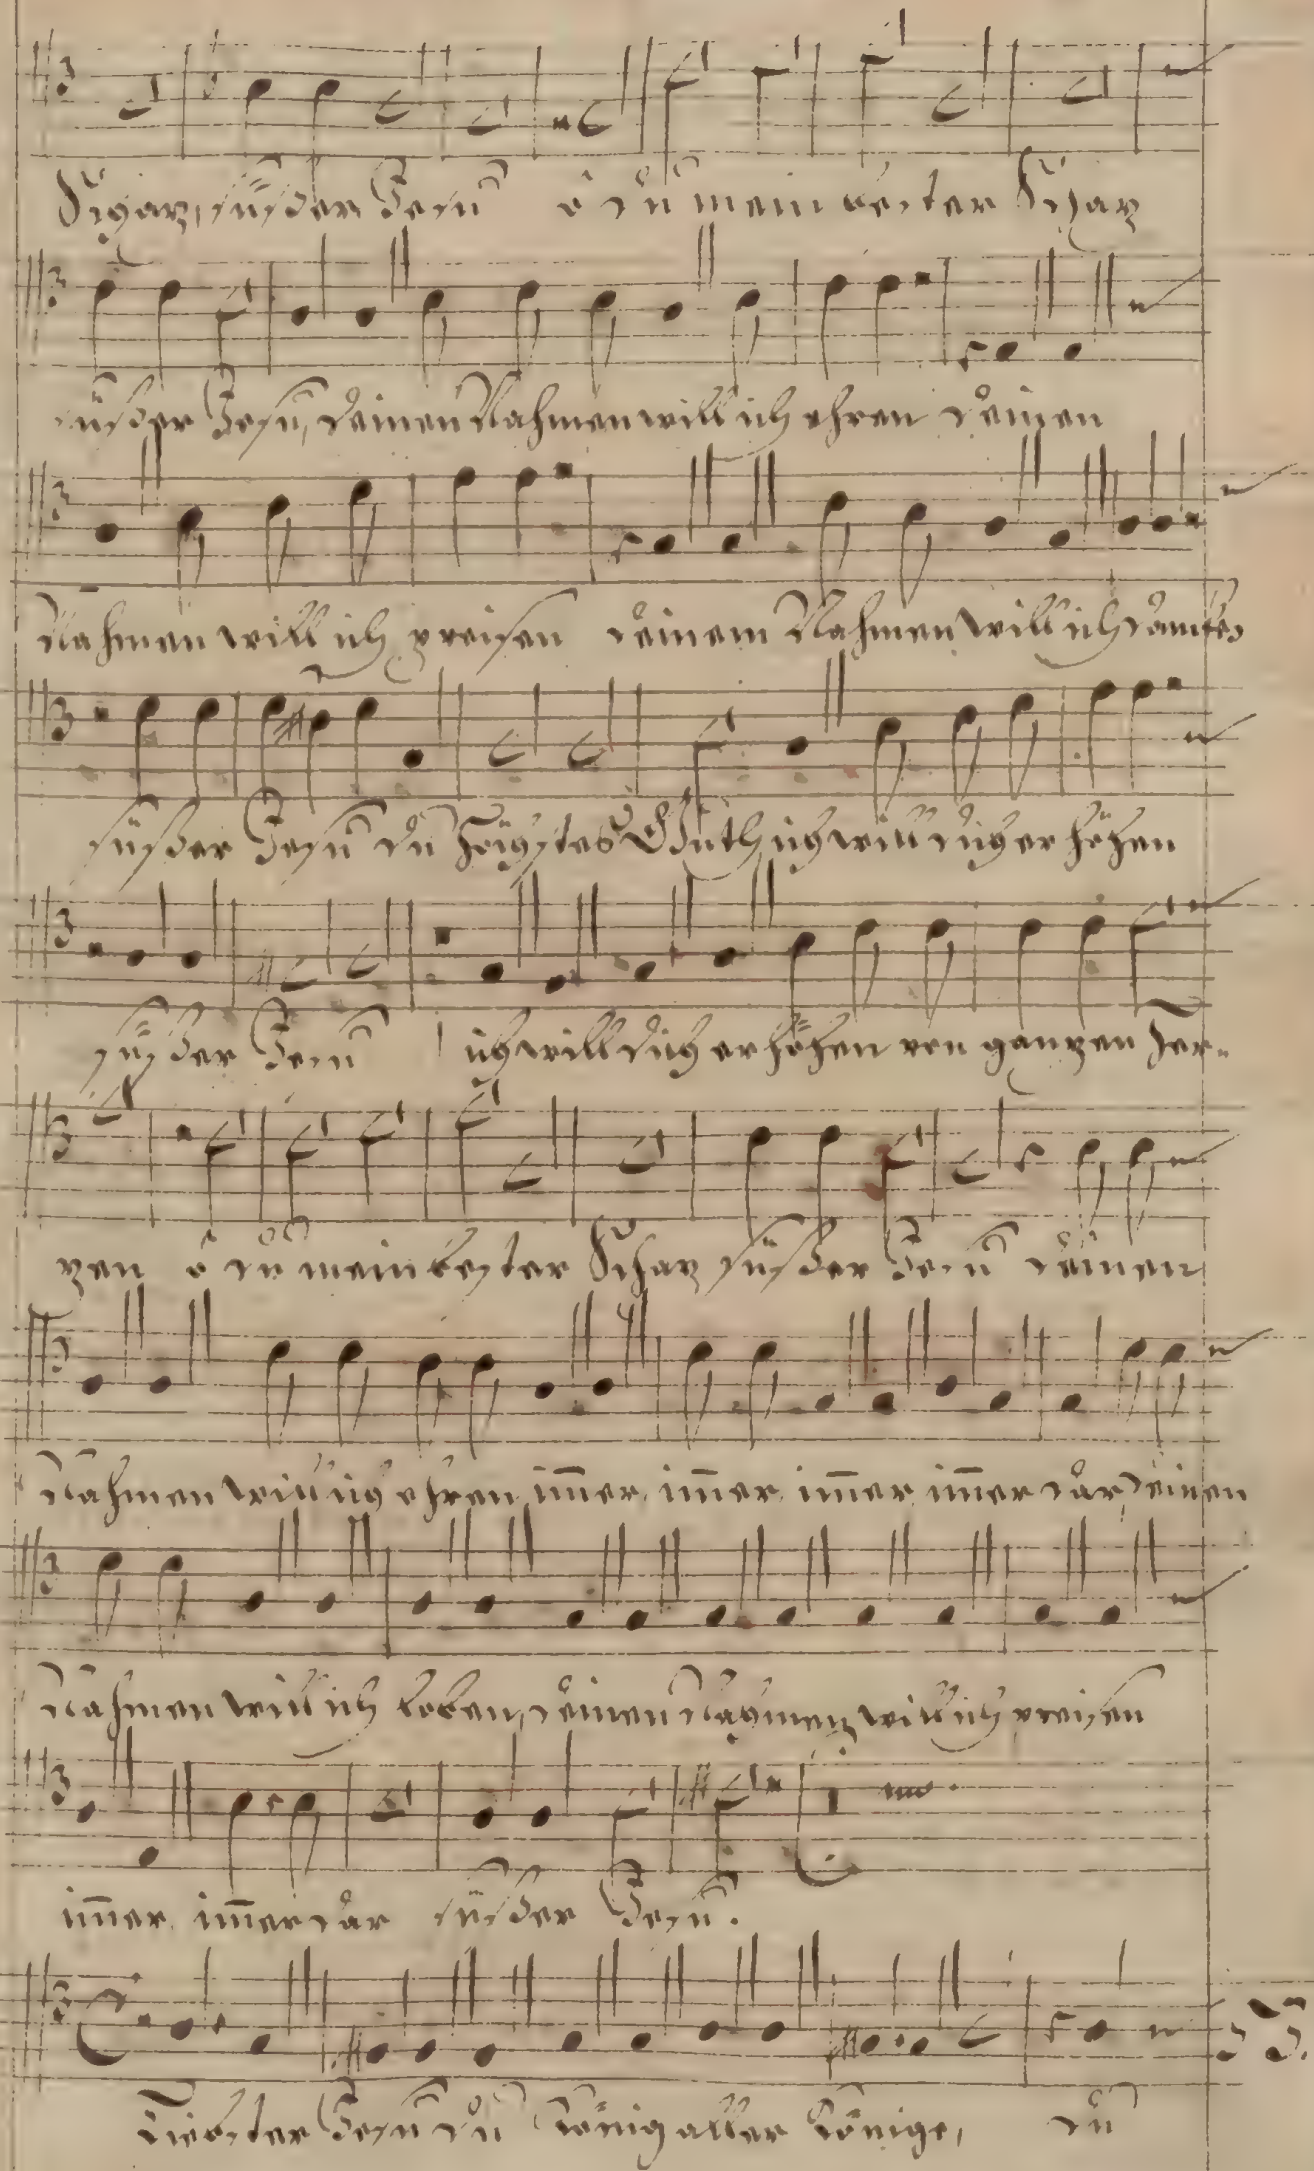 Schaz, süsser Jesu o du mein bester Schaz
süsser Jesu, deinen Nahmen will ich ehren deinen
Nahmen will ich preisen deinem Nahmen will ich dancken
süsser Jesu du höchstes Guth, ich will dich erhöhen
süsser Jesu ich will dich erhöhen von ganzen Her-
zen o du mein bester Schaz süsser Jesu deinen
Nahmen will ich ehren im̄er, im̄er, im̄er im̄er dar, deinen
Nahmen will ich loben, deinen Nahmen will ich preisen
im̄er, im̄er dar süsser Jesu.
Liebster Jesu du König aller Könige, du